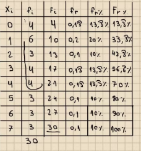 xi fi Fi fr fr% Fr%
0 4 4 0,13 13,3% 13,3%
1 6 10 0,2 20% 33,3%
2 3 13 0,1 10% 43,3%
3 4 17 0,13 13,3% 56,6%
4 4 21 0,13 13,3% 70%
5 3 24 0,1 10% 80%
6 3 27 0,1 10% 90%
7 3 30 0,1 10% 100%
30